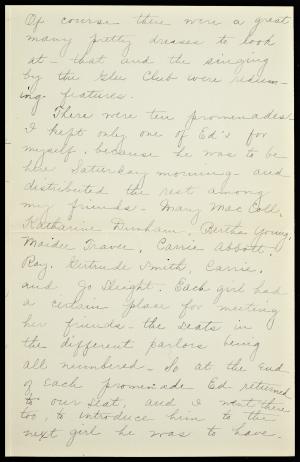 Of course there were a great
many pretty dresses to look
at - that and the singing
by the Glee Club were redeem-
ing features.
There were ten promenades.
I kept only one of Ed's for
myself, because he was to be
here Saturday morning - and
distributed the rest among
my friends - Mary MacColl,
Katharine Dunham, Bertha Young,
Maidee Traver, Carrie Abbott,
Ray, Gertrude Smith, Carrie,
and Jo Sleight. Each girl had
a certain place for meeting
her friends - the seats in
the different parlors being
all numbered - So at the end
of each promenade Ed returned
to our seat, and I went there
too, to introduce him to the
next girl he was to have.